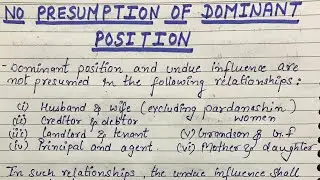 NO PRESUMPTION OF DOMINANT
POSITION
- Dominant position and undue influence are
not presumed in the following relationships:
(i) Husband & wife (excluding pardanashin)
(ii) Creditor & debtor women
(iii) Landlord & tenant (v) Grandson & G.f
(iv) Principal and agent (vi) Mother & daughter
In such relationships, the undue influence shall